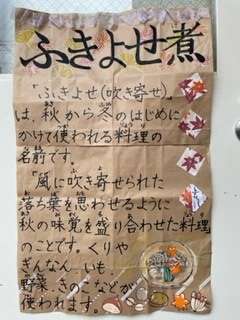 ふきよせ煮
「ふきよせ（吹き寄せ）」
は、秋から冬のはじめに
かけて使われる料理の
名前です。
「風に吹き寄せられた
落ち葉を思わせるように
秋の味覚を盛り合わせた料理
のことです。くりや
ぎんなん、いも、
野菜、きのこなどが
使われます。